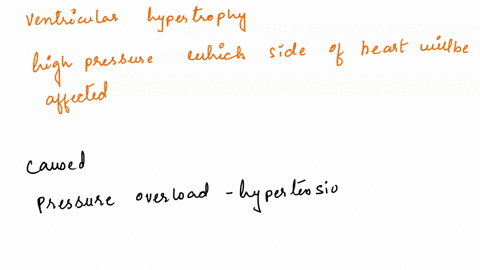 ventricular hypertrophy
high pressure which side of heart will be
affected
caused
pressure overload - hypertensio